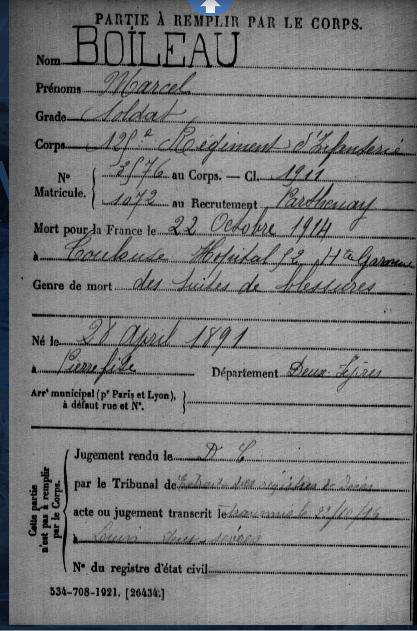 PARTIE À REMPLIR PAR LE CORPS.
Nom BOILEAU
Prénoms Marcel
Grade Soldat
Corps 125e Régiment d'Infanterie
N° Matricule. { 2576 au Corps. — Cl. 1911
1072 au Recrutement Parthenay
Mort pour la France le 22 Octobre 1914
à Toulouse Hôpital 52 Hte Garonne
Genre de mort des suites de blessures
Né le 28 April 1891
à Pierrefite Département Deux-Sèvres
Arrt municipal (pr Paris et Lyon), à défaut rue et N°.
Cette partie n'est pas à remplir par le Corps.
Jugement rendu le D C
par le Tribunal de Extrait des registres de décès
acte ou jugement transcrit le transmis le 22/10/14
à Deux-Sèvres
N° du registre d'état civil
534-708-1921. [26434.]